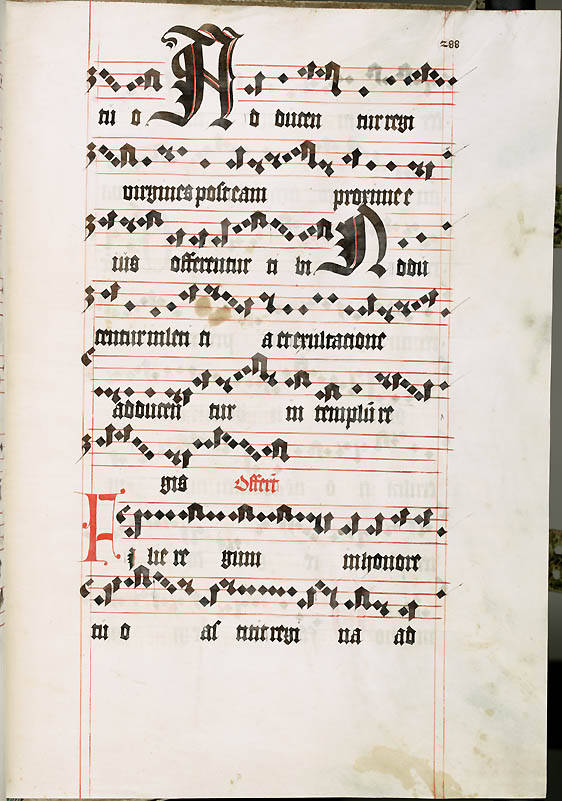 288
tu o A d ducen tur regi
virgines post eam proxime e
ius offerentur ti bi A ddu
centur in leti ti a et exultatione
adducen tur in templū re
gis Offert
F i lie re gum in honore
tu o as titit regi na ad